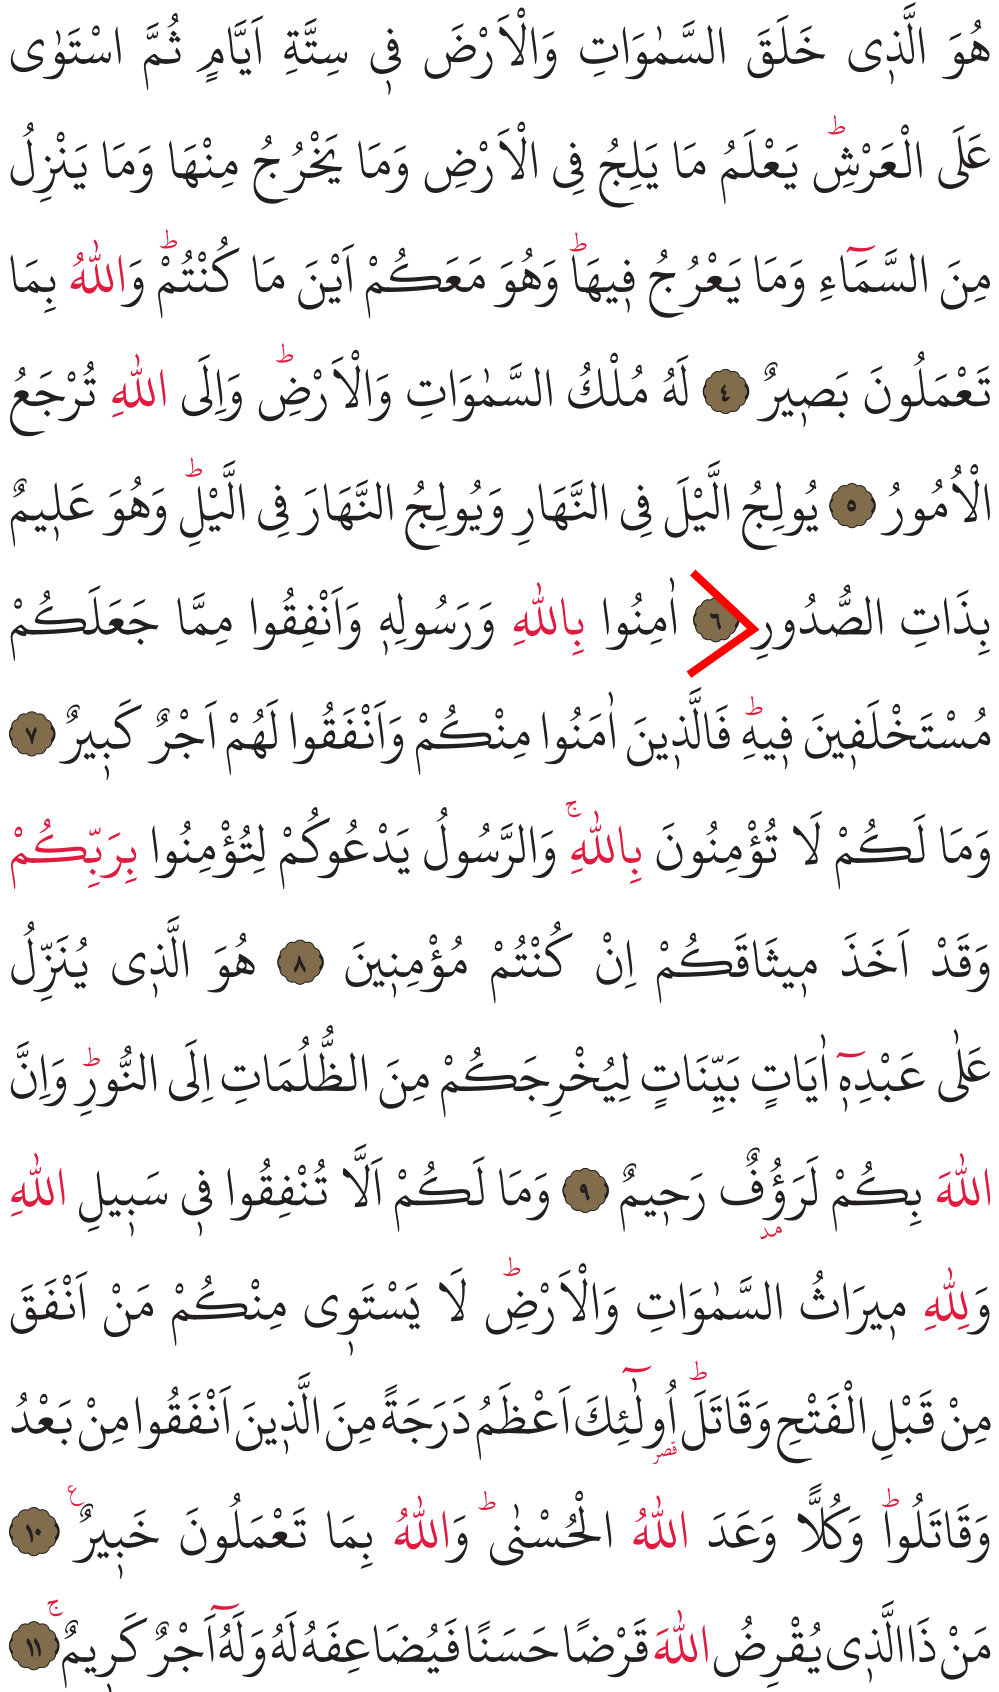 هُوَ الَّذ۪ى خَلَقَ السَّمٰوَاتِ وَالْاَرْضَ ف۪ى سِتَّةِ اَيَّامٍ ثُمَّ اسْتَوٰى
عَلَى الْعَرْشِۜ يَعْلَمُ مَا يَلِجُ فِى الْاَرْضِ وَمَا يَخْرُجُ مِنْهَا وَمَا يَنْزِلُ
مِنَ السَّمَٓاءِ وَمَا يَعْرُجُ ف۪يهَاۜ وَهُوَ مَعَكُمْ اَيْنَ مَا كُنْتُمْۜ وَاللّٰهُ بِمَا
تَعْمَلُونَ بَص۪يرٌ ﴿٤﴾ لَهُ مُلْكُ السَّمٰوَاتِ وَالْاَرْضِۜ وَاِلَى اللّٰهِ تُرْجَعُ
الْاُمُورُ ﴿٥﴾ يُولِجُ الَّيْلَ فِى النَّهَارِ وَيُولِجُ النَّهَارَ فِى الَّيْلِۜ وَهُوَ عَل۪يمٌ
بِذَاتِ الصُّدُورِ ﴿٦﴾ اٰمِنُوا بِاللّٰهِ وَرَسُولِه۪ وَاَنْفِقُوا مِمَّا جَعَلَكُمْ
مُسْتَخْلَف۪ينَ ف۪يهِۜ فَالَّذ۪ينَ اٰمَنُوا مِنْكُمْ وَاَنْفَقُوا لَهُمْ اَجْرٌ كَب۪يرٌ ﴿٧﴾
وَمَا لَكُمْ لَا تُؤْمِنُونَ بِاللّٰهِۚ وَالرَّسُولُ يَدْعُوكُمْ لِتُؤْمِنُوا بِرَبِّكُمْ
وَقَدْ اَخَذَ م۪يثَاقَكُمْ اِنْ كُنْتُمْ مُؤْمِن۪ينَ ﴿٨﴾ هُوَ الَّذ۪ى يُنَزِّلُ
عَلٰى عَبْدِه۪ٓ اٰيَاتٍ بَيِّنَاتٍ لِيُخْرِجَكُمْ مِنَ الظُّلُمَاتِ اِلَى النُّورِۜ وَاِنَّ
اللّٰهَ بِكُمْ لَرَؤُفٌ رَح۪يمٌ ﴿٩﴾ وَمَا لَكُمْ اَلَّا تُنْفِقُوا ف۪ى سَب۪يلِ اللّٰهِ
وَلِلّٰهِ م۪يرَاثُ السَّمٰوَاتِ وَالْاَرْضِۜ لَا يَسْتَو۪ى مِنْكُمْ مَنْ اَنْفَقَ
مِنْ قَبْلِ الْفَتْحِ وَقَاتَلَۜ اُو۬لٰٓئِكَ اَعْظَمُ دَرَجَةً مِنَ الَّذ۪ينَ اَنْفَقُوا مِنْ بَعْدُ
وَقَاتَلُواۜ وَكُلًّا وَعَدَ اللّٰهُ الْحُسْنٰىۜ وَاللّٰهُ بِمَا تَعْمَلُونَ خَب۪يرٌ ع ﴿١٠﴾
مَنْ ذَا الَّذ۪ى يُقْرِضُ اللّٰهَ قَرْضًا حَسَنًا فَيُضَاعِفَهُ لَهُ وَلَهُٓ اَجْرٌ كَر۪يمٌۚ ﴿١١﴾